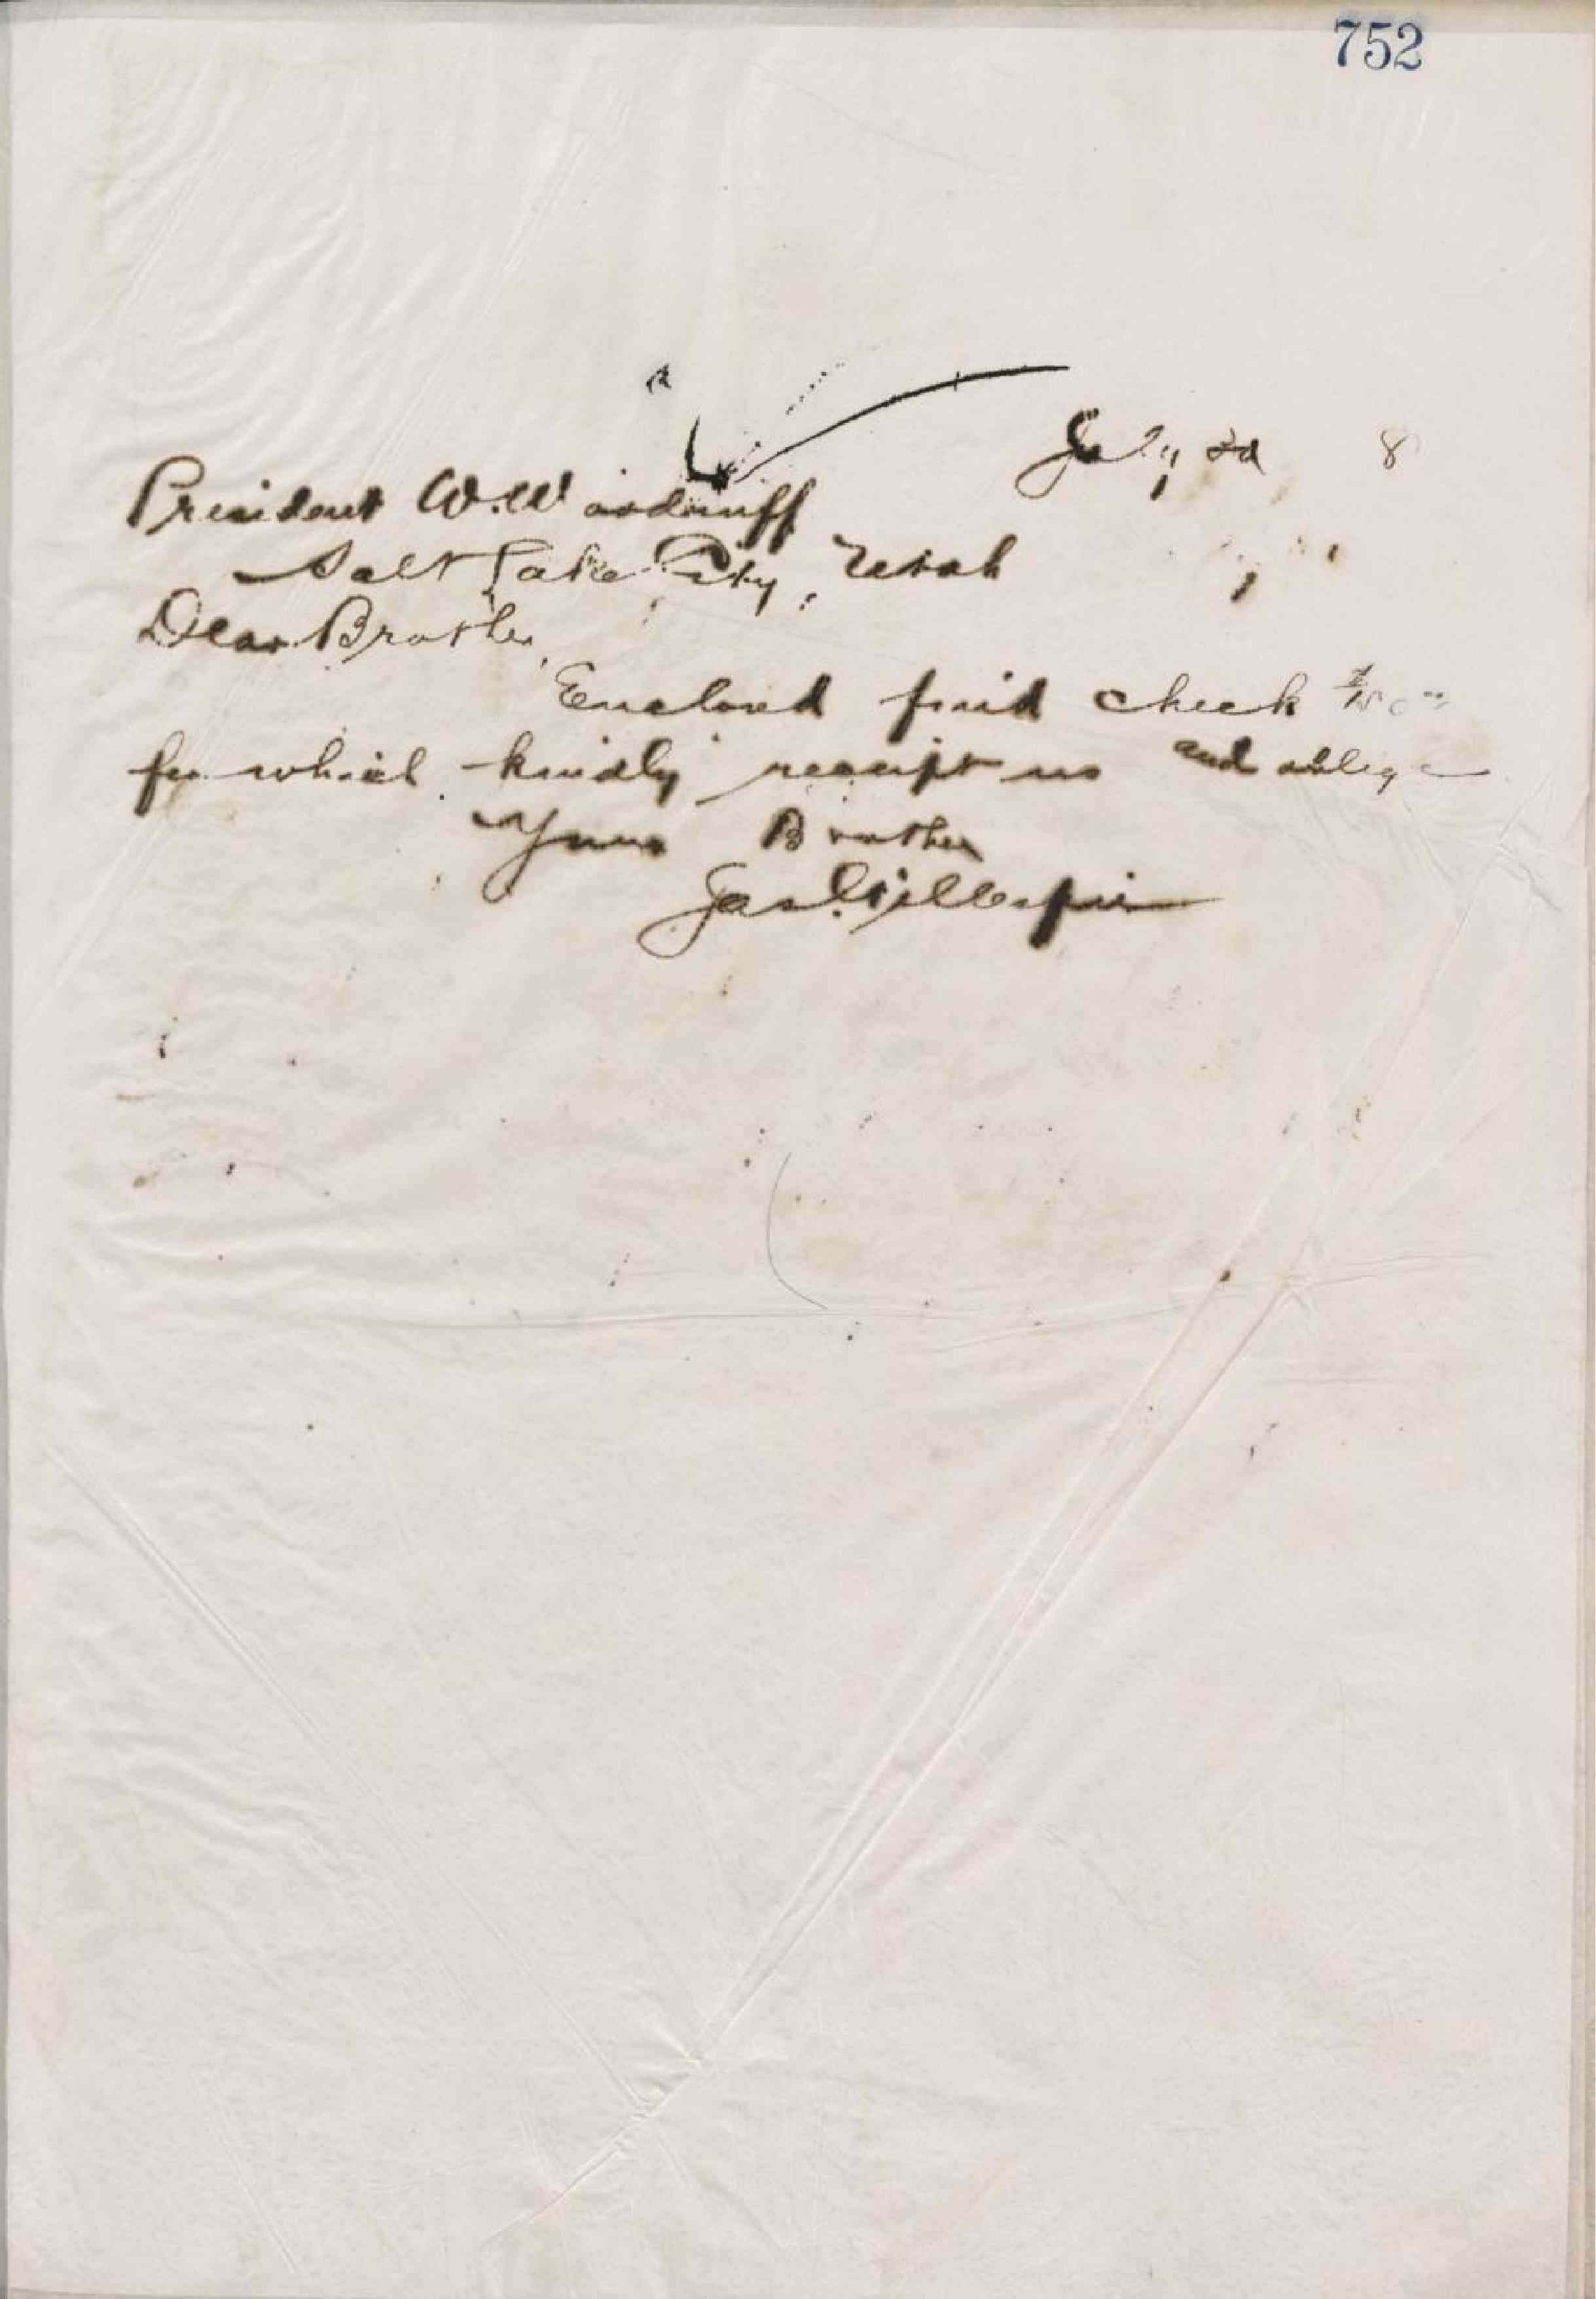 752
July 3d 8
President W. Woodruff
Salt Lake City, Utah
Dear Brother,
Enclosed find check
for which kindly receipt us and oblige
Your Brother
Jas. Gillespie